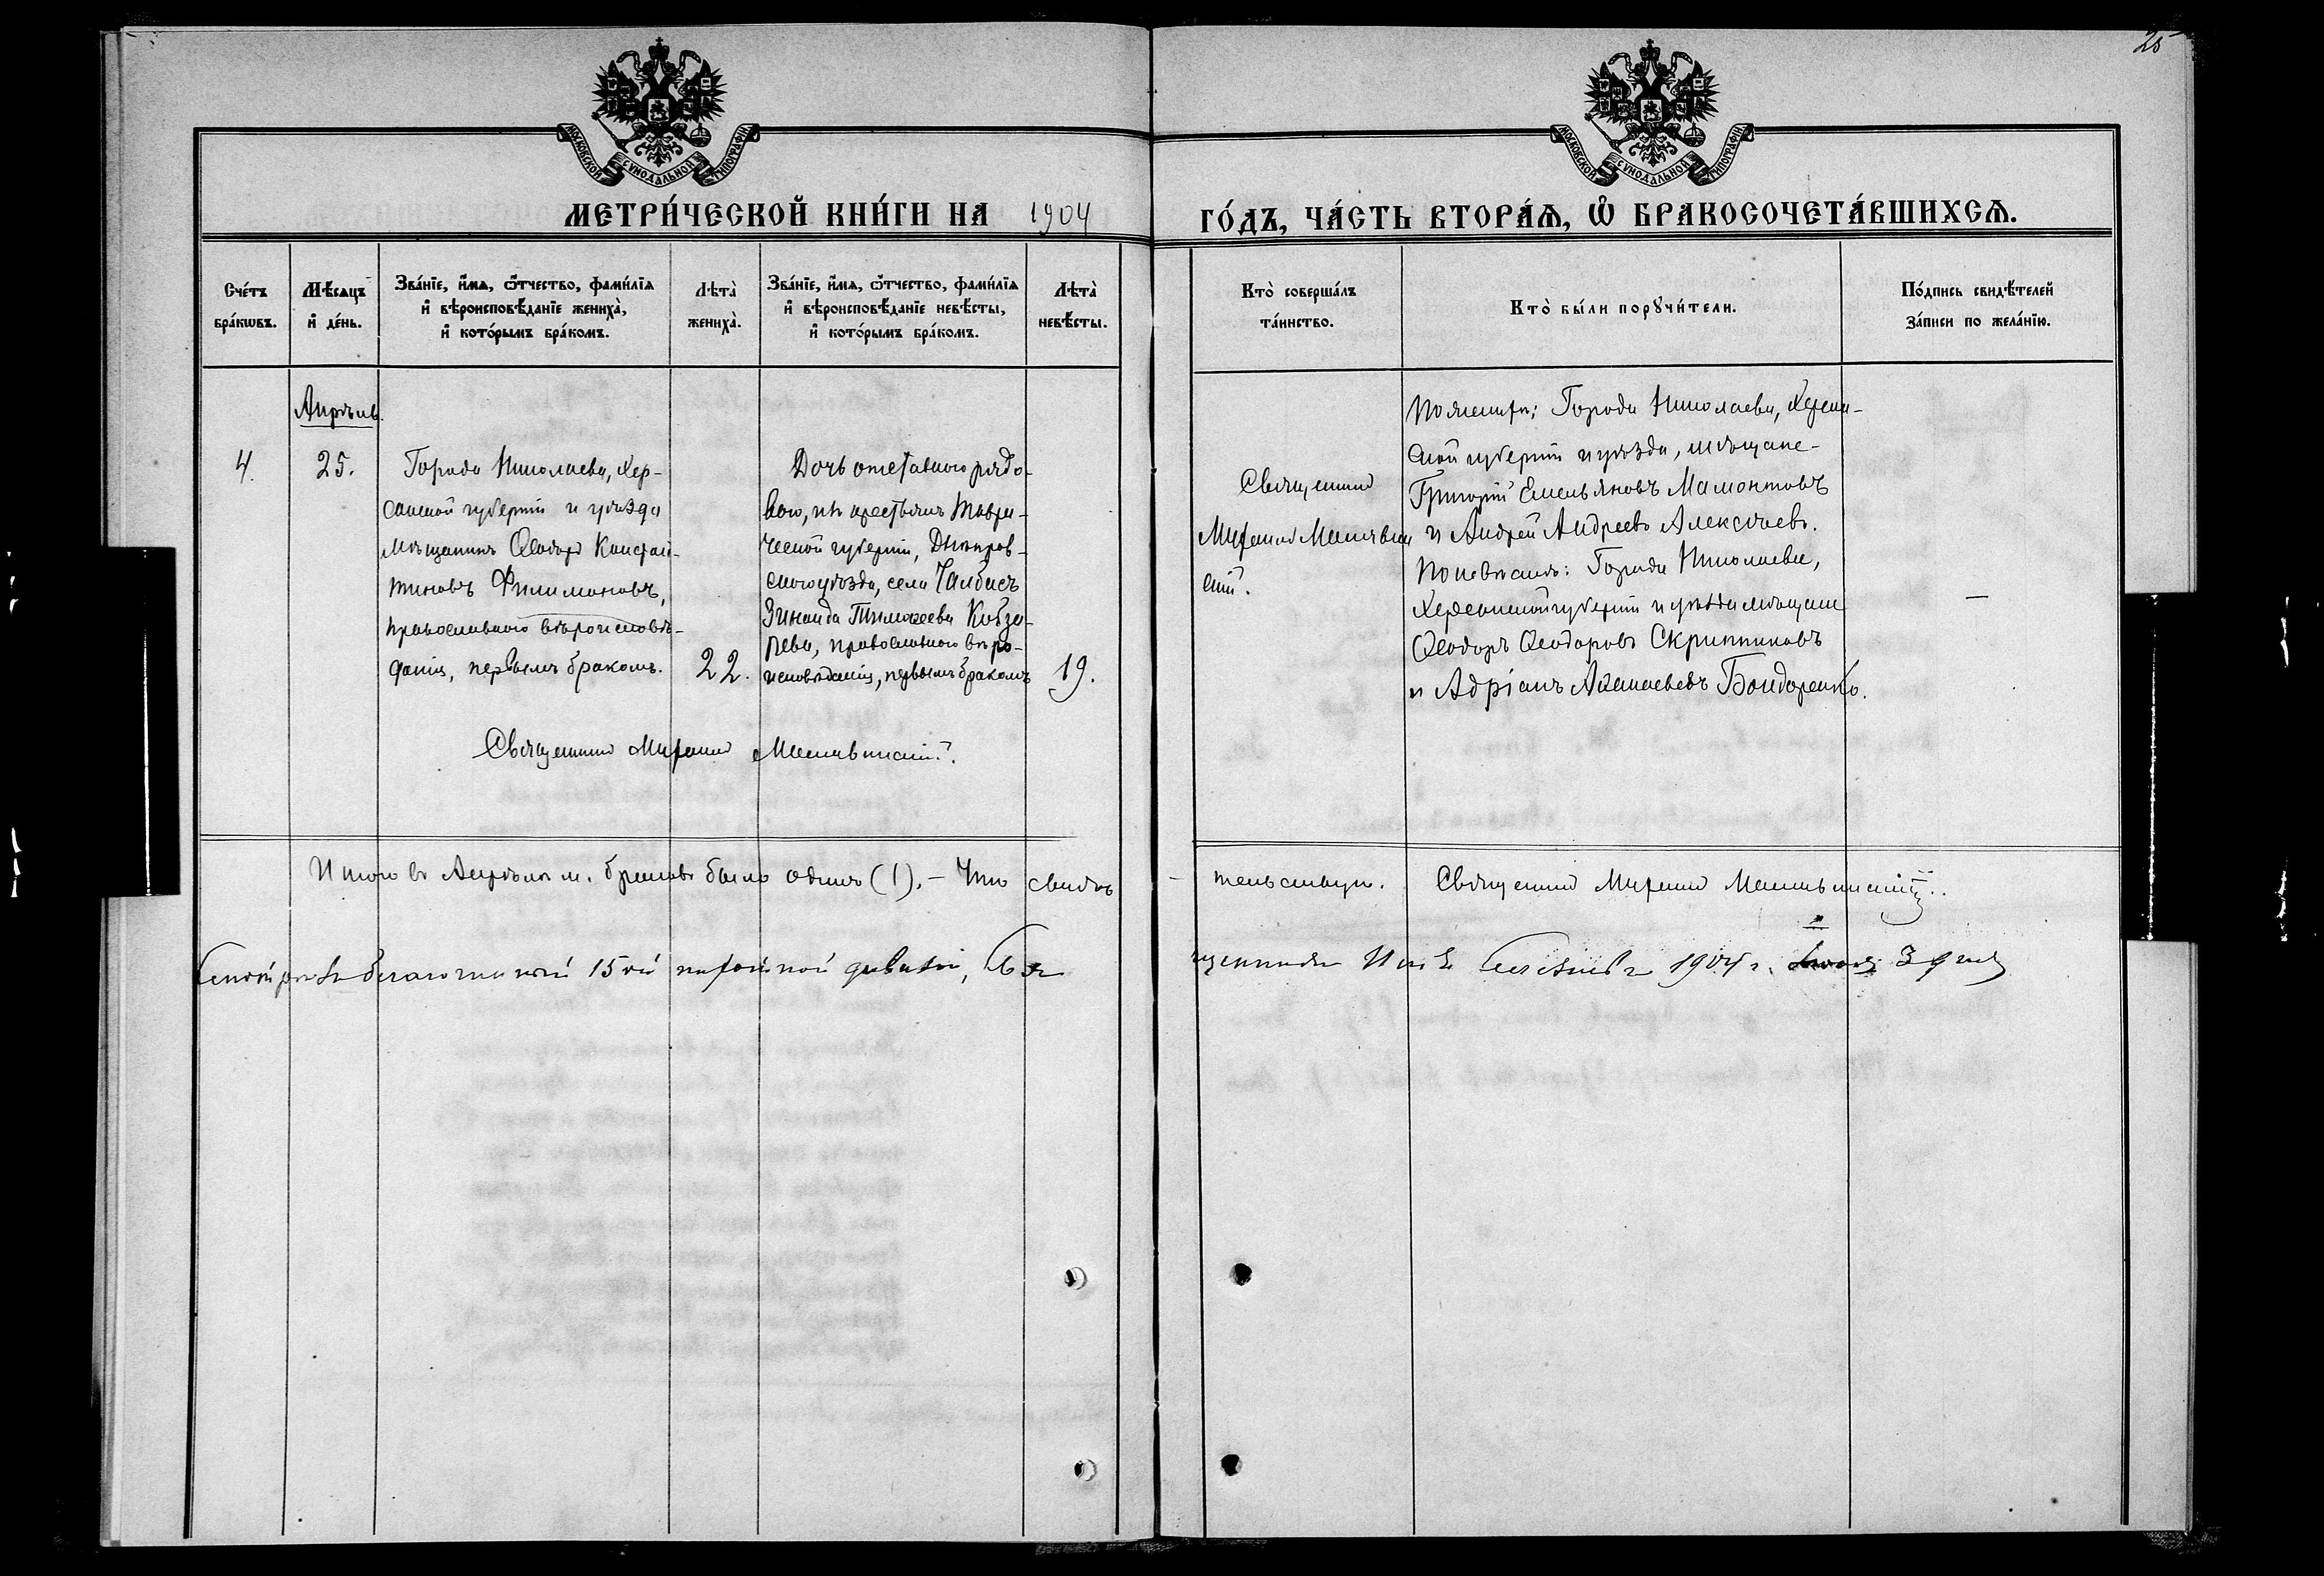 25
МОСКОВСКОЙ СѴНОДАЛЬНОЙ ТИПОГРАФІИ
МОСКОВСКОЙ СѴНОДАЛЬНОЙ ТИПОГРАФІИ
МЕТРИ́ЧЕСКОЙ КНИ́ГИ НА 1904
ГО́ДЪ, ЧА́СТЬ ВТОРА́Ѧ, Ѽ БРАКОСОЧЕТА́ВШИХСѦ.
Сче́тъ
бра́кѡвъ.
Мѣ́сѧцъ
и҆ де́нь.
Зва́нїе, и҆́мѧ, ѻ҆́тчество, фами́лїѧ
и҆ вѣроисповѣ́данїе жениха̀,
и҆ кото́рымъ бра́комъ.
Лѣта̀
жениха̀.
Зва́нїе, и҆́мѧ, ѻ҆́тчество, фами́лїѧ
и҆ вѣроисповѣ́данїе невѣ́сты,
и҆ кото́рымъ бра́комъ.
Лѣта̀
невѣ́сты.
Кто̀ соверша́лъ
та́инство.
Кто̀ бы́ли порꙋчи́тели.
По́дпись свидѣ́телей
за́писи по жела́нїю.
Апрѣль.
4.
25.
Города Николаева, Хер-
сонской губерніи и уѣзда
мѣщанинъ Ѳеодоръ Констан-
тиновъ Филимоновъ,
православнаго вѣроисповѣ-
данія, первымъ бракомъ.
22.
Дочь отставного рядо-
вого, изъ крестьянъ Таври-
ческой губерніи, Днѣпров-
скаго уѣзда, села Чалбасъ
Зинаида Тимоѳеева Кобза-
рева, православнаго вѣро-
исповѣданія, первымъ бракомъ
19.
Священникъ
По женихѣ: Города Николаева, Херсон-
ской губерніи и уѣзда, мѣщане-
Григорій Емельяновъ Мамонтовъ
и Андрей Андреевъ Алексѣевъ.
По невѣстѣ: Города Николаева,
Херсонской губерніи и уѣзда мѣщане
Ѳеодоръ Ѳеодоровъ Скрипниковъ
и Адріанъ Бондаренко.
—
Священникъ
Итого въ Апрѣлѣ м. браковъ было одинъ (1). – Что свидѣ-
тельствую. Священникъ
благочинный 15ой пѣхотной дивизіи, Свя
щенникъ 1904 г. 3 дня